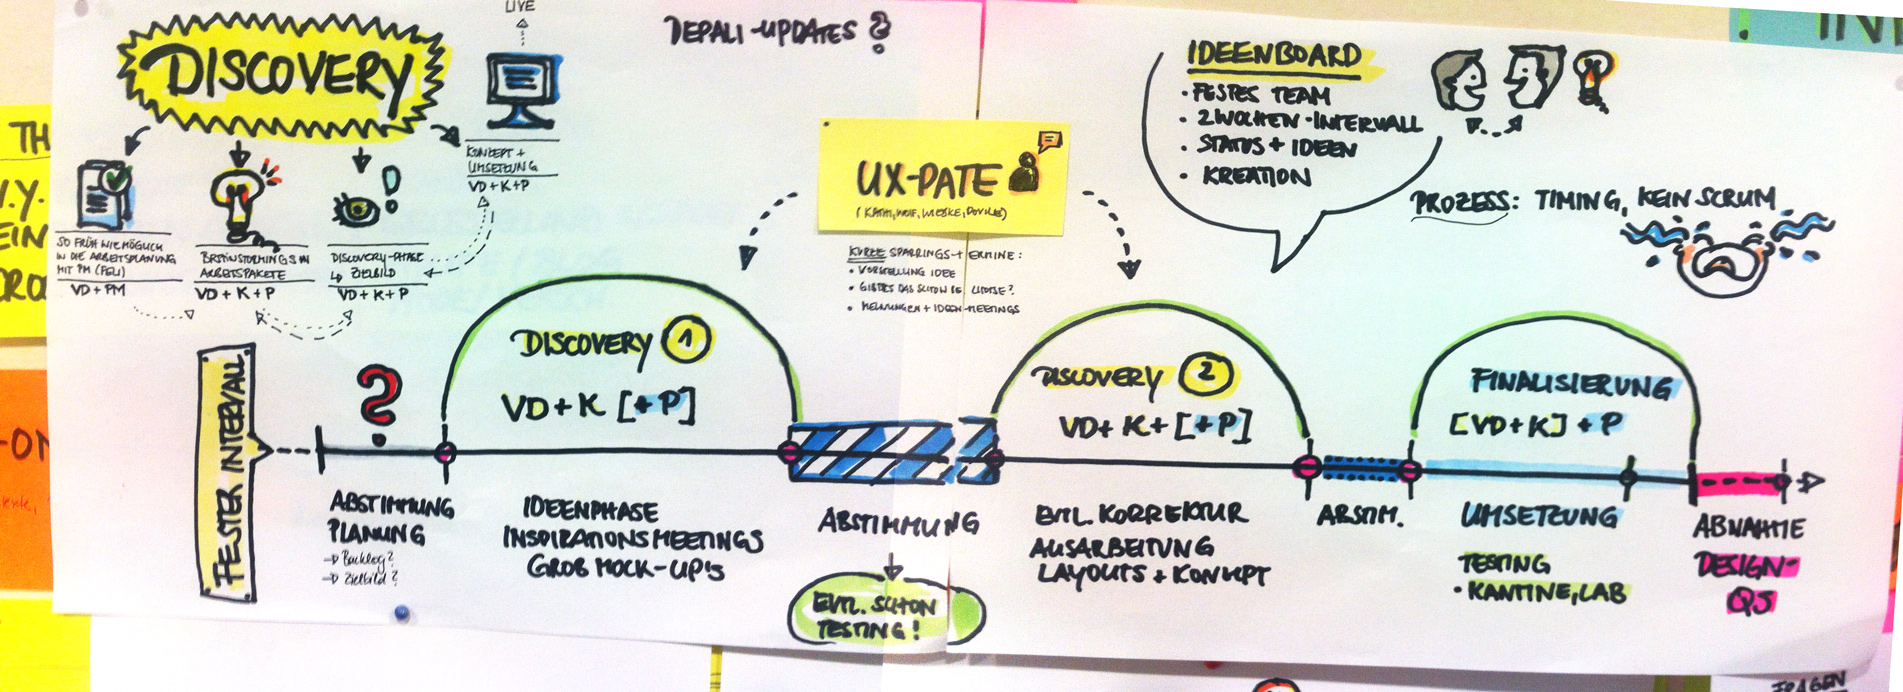 LIVE
DEPALI-UPDATES?
DISCOVERY
KONZEPT +
UMSETZUNG
VD+K+P
SO FRÜH WIE MÖGLICH
IN DIE ARBEITSPLANUNG
MIT PM (FELI)
VD+PM
BRAINSTORMINGS IN
ARBEITSPAKETE
VD+K+P
DISCOVERY-PHASE
ZIELBILD
VD+K+P
UX-PATE
KURZE SPARRINGS-TERMINE:
• VORSTELLUNG IDEE
• GIBT ES DAS SCHON
• MEINUNGEN + IDEEN-MEETINGS
IDEENBOARD
• FESTES TEAM
• 2 WOCHEN-INTERVALL
• STATUS + IDEEN
• KREATION
PROZESS: TIMING, KEIN SCRUM
FESTER INTERVALL
?
ABSTIMMUNG
PLANUNG
→ Backlog?
→ Zielbild?
DISCOVERY 1
VD+K [+P]
IDEENPHASE
INSPIRATIONSMEETINGS
GROB MOCK-UP'S
ABSTIMMUNG
EVTL. SCHON
TESTING!
DISCOVERY 2
VD+K+[+P]
EVTL. KORREKTUR
AUSARBEITUNG
LAYOUTS + KONZEPT
ABSTIM.
FINALISIERUNG
[VD+K]+P
UMSETZUNG
TESTING
• KANTINE, LAB
ABNAHME
DESIGN-
QS
FRAGEN